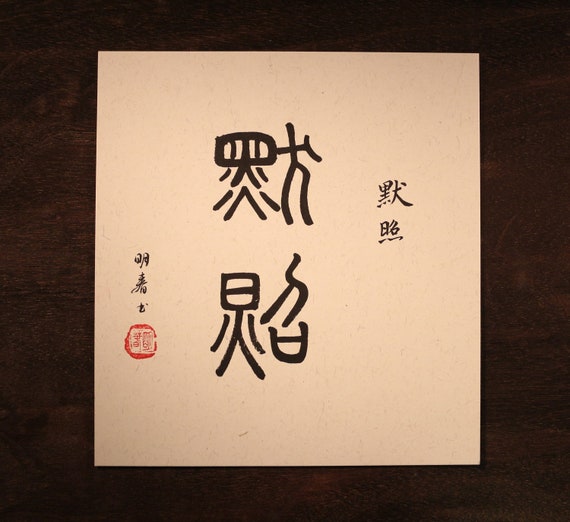 默照
默照
明春书